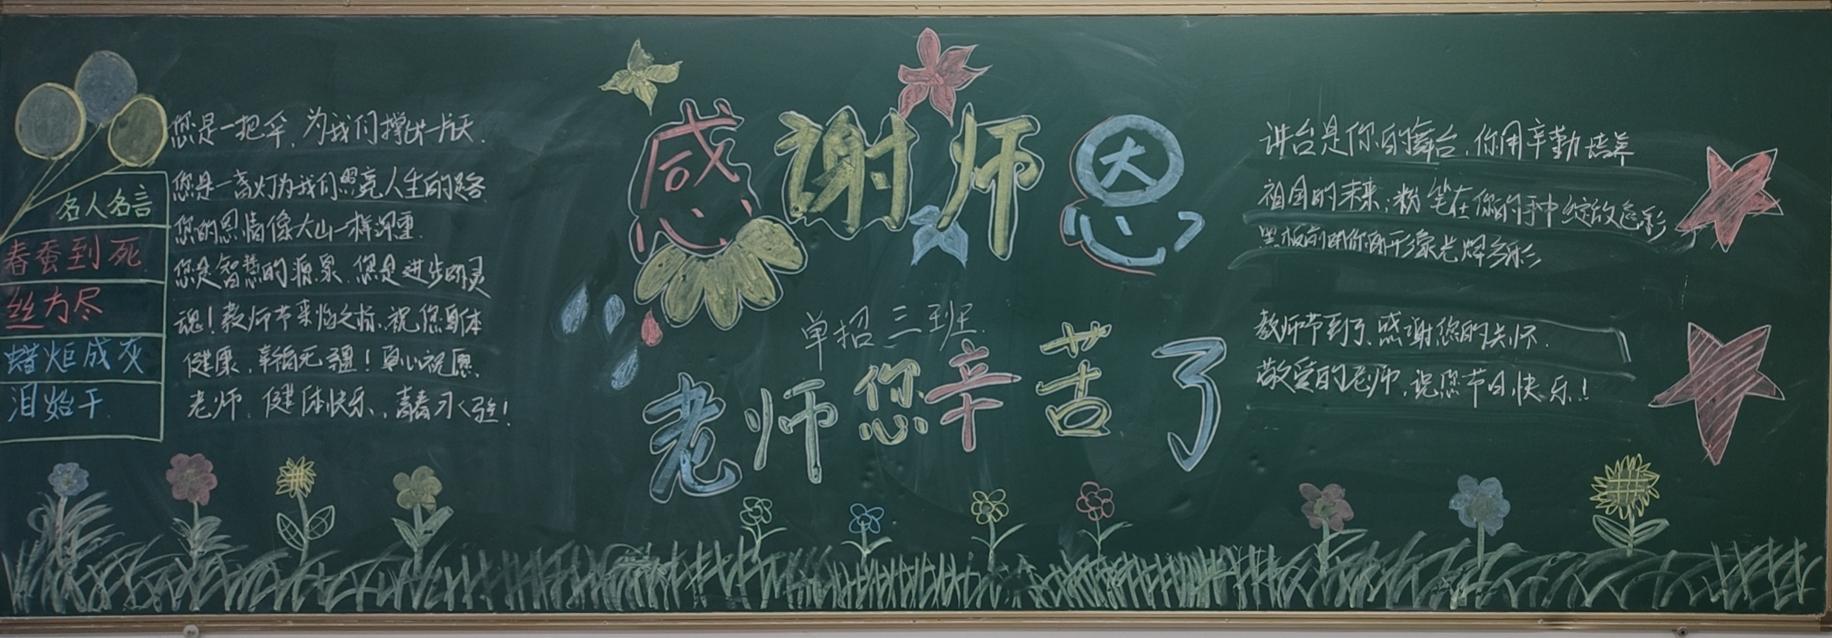 名人名言
春蚕到死
丝方尽
蜡炬成灰
泪始干
您是一把伞,为我们撑出一片天.
您是一盏灯为我们照亮人生的路
您的恩情像大山一样深重.
您是智慧的源泉,您是进步的灵
魂!教师节来临之际,祝您身体
健康,幸福无疆!真心祝愿
老师,健体快乐,青春永驻!
感谢师恩
单招三班.
老师您辛苦了
讲台是你的舞台,你用辛勤培养
祖国的未来;粉笔在你的手中绽放色彩
黑板前的你的形象光辉多彩
教师节到了,感谢您的关怀.
敬爱的老师,祝您节日快乐!